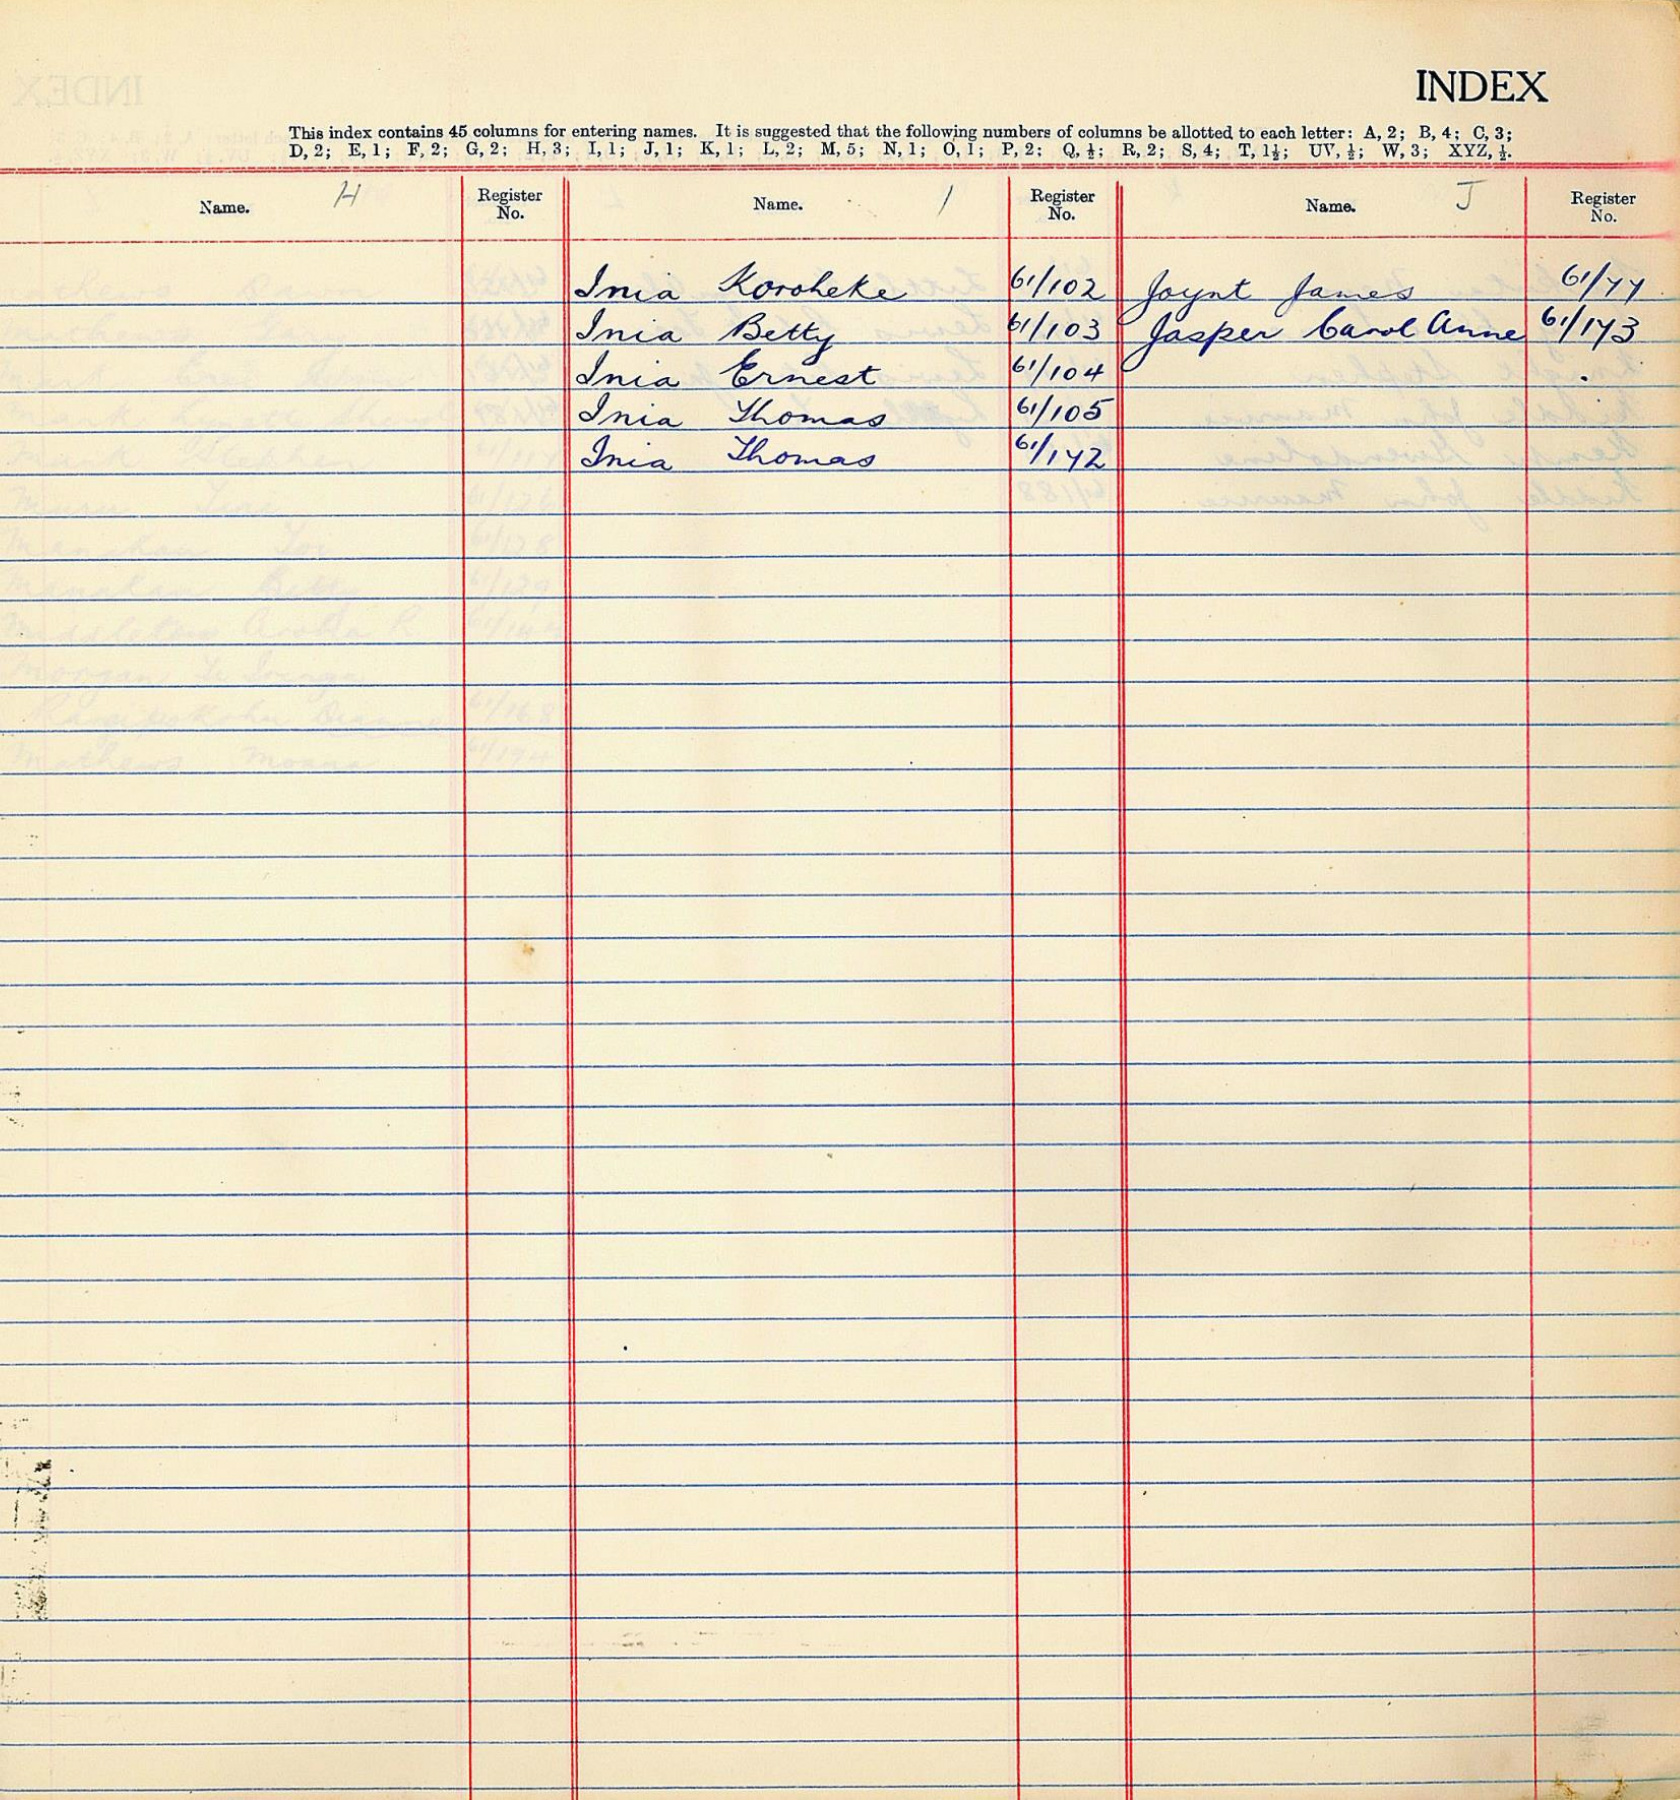 INDEX
This index contains 45 columns for entering names. It is suggested that the following numbers of columns be allotted to each letter: A, 2; B, 4; C, 3;
D, 2; E, 1; F, 2; G, 2; H, 3; I, 1; J, 1; K, 1; L, 2; M, 5; N, 1; O, 1; P, 2; Q, ½; R, 2; S, 4; T, 1½; UV, ½; W, 3; XYZ, ½.
Name. H Register No. Name. I Register No. Name. J Register No.
Inia Koroheke 61/102 Joynt James 61/77
Inia Betty 61/103 Jasper Carol Anne 61/173
Inia Ernest 61/104
Inia Thomas 61/105
Inia Thomas 61/172